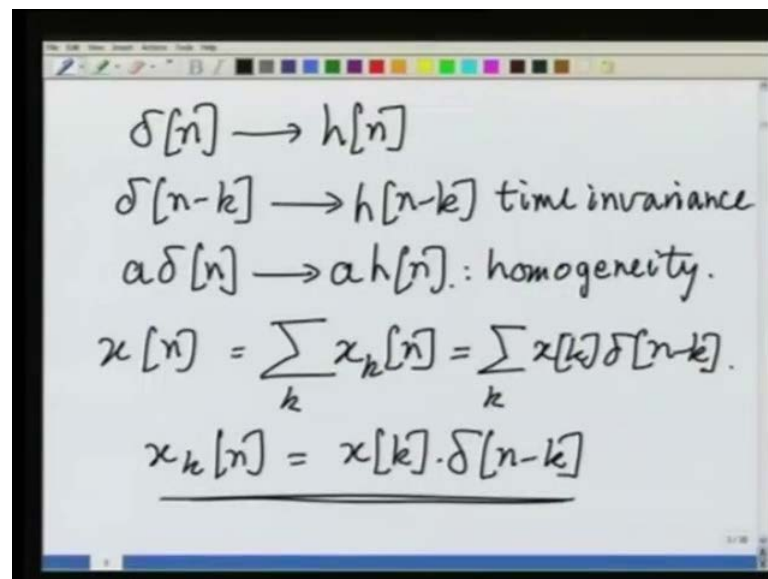 File Edit View Insert Actions Tools Help
B I
δ[n] → h[n]
δ[n-k] → h[n-k] time invariance
aδ[n] → ah[n]. : homogeneity.
x[n] = ∑ₖ xₖ[n] = ∑ₖ x[k]δ[n-k].
xₖ[n] = x[k].δ[n-k]